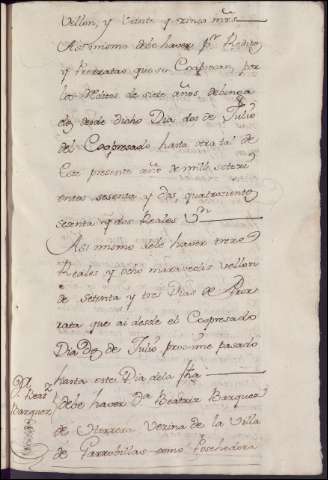 vellon, y veinte y cinco mrs.
Asi mismo debe haver pr. Reditos
y Pentratas que se Coopiaran, por
los Reditos de siete años, debenga
dos desde dicho Dia dos de Julio
del Coopresado hasta otra tal de
este presente año de mill, seteci
entos sesenta y dos, quatrocientos
sesenta y dos Reales Vn.
Asi mismo debe haver trece
Reales y ocho maravedis vellon
de setenta y tres Dias de Pror
rata que ai desde el Coopresado
Dia Dos de Julio proximo pasado
hasta este Dia dela fha
Debe haver Da. Beatriz Barquez
de Herrera Vecina de la Villa
de Garrobillas como Posehedora
Da. Beatz.
Barquez